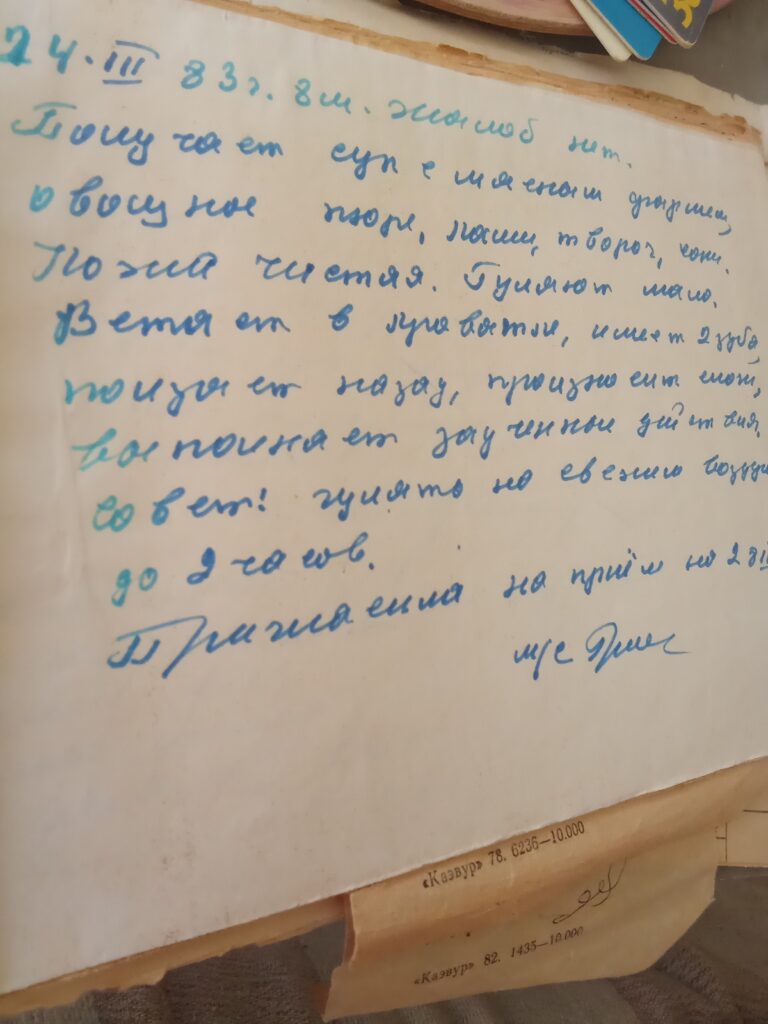 24.III 83г. 8м. жалоб нет.
Получает суп с мясным фаршем,
овощное пюре, каши, творог, соки.
Кожа чистая. Гуляют мало.
Встает в кроватки, имеет 2 зуба,
ползает назад, произносит слоги,
выполняет заученные действия.
Совет: гулять на свежим воздухе
до 2 часов.
Пригласила на приём на 28 III
м/с
«Каэвур» 78. 6236—10.000
«Каэвур» 82. 1435—10.000